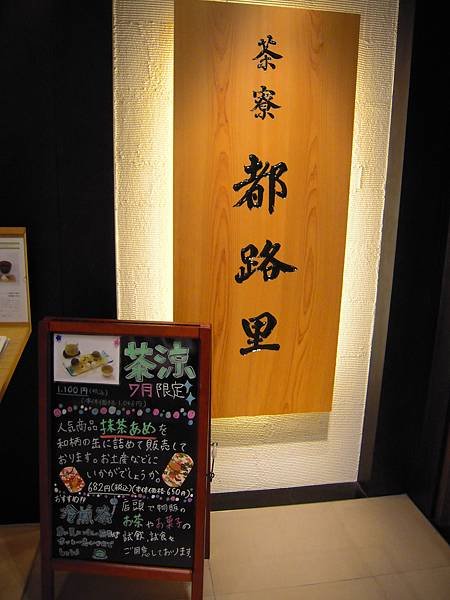 茶寮
都路里
茶涼
7月限定
1,100円(税込)
(本体価格1,048円)
人気商品 抹茶あめを
和柄の缶に詰めて販売して
おります。お土産などに
いかがでしょうか。
682円(税込)(本体価格650円)
おすすめ!!
冷煎茶
店頭で物販の
お茶やお菓子の
試飲、試食を
ご用意しております